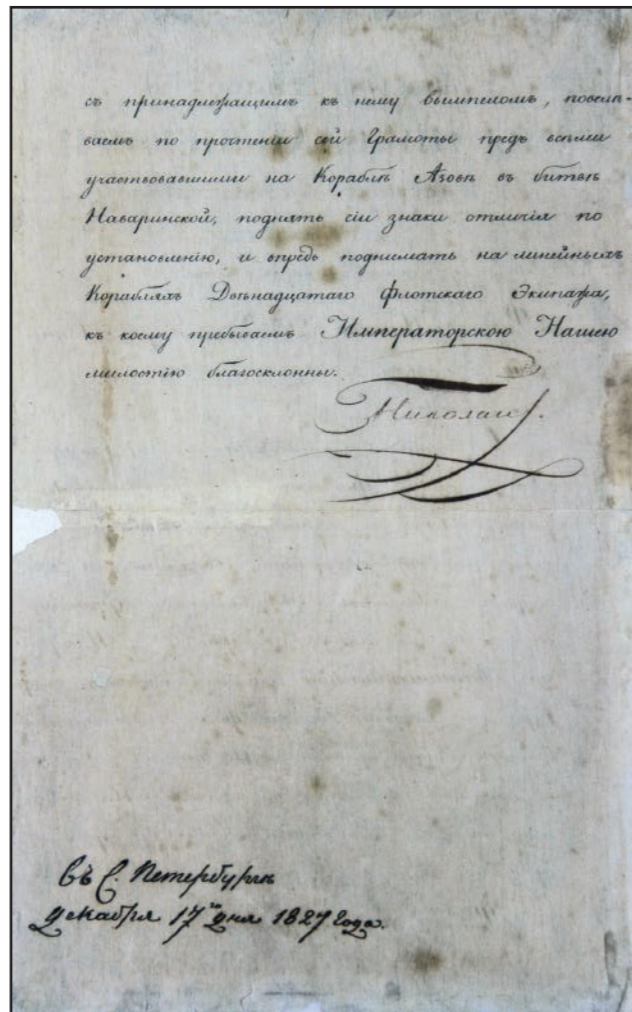 съ принадлежащимъ къ нему вымпеломъ, повелѣ-
ваемъ по прочтеніи сей Грамоты предъ всѣми
участвовавшими на Кораблѣ Азовѣ въ битвѣ
Наваринской, поднять сіи знаки отличія по
установленію, и впредь поднимать на линейныхъ
Корабляхъ Двѣнадцатаго флотскаго Экипажа,
къ коему пребываемъ Императорскою Нашею
милостію благосклонны.
Николай.
въ С. Петербургѣ
декабря 17го дня 1827 года.